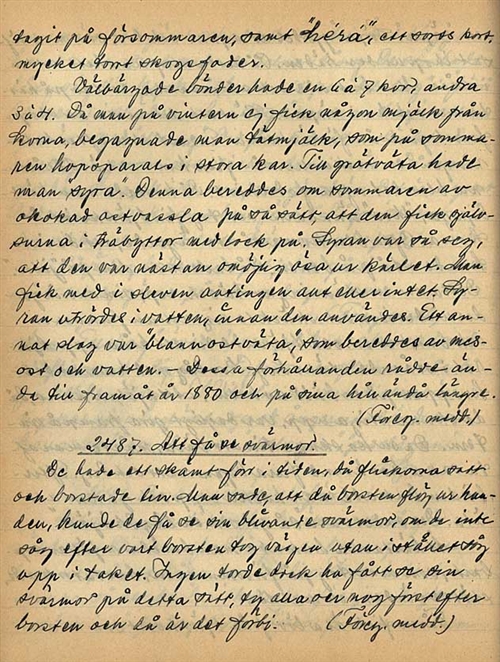 tagit på försommaren, samt "héra", ett sorts kort,
mycket torrt skogsfoder.
Välbärgade bönder hade en 6 à 7 kor, andra
3 à 4. Då man på vintern ej fick någon mjölk från
korna, begagnade man tätmjölk, som på somma-
ren hopsparats i stora kar. Till grötväta hade
man syra. Denna bereddes om sommaren av
okokad ostvassla på så sätt att den fick själv-
surna i träbyttor med lock på. Syran var så seg,
att den var nästan omöjlig ösa ur kärlet. Man
fick med i sleven antingen allt eller intet. Sy-
ran utrördes i vatten, innan den användes. Ett an-
nat slag var "blannostväta", som bereddes av mes-
ost och vatten. – Dessa förhållanden rådde än-
da till fram åt år 1880 och på sina håll ändå längre.
(Föreg. medd.)
2487. Att få se svärmor.
De hade ett skämt förr i tiden, då flickorna satt
och borstade lin. Man sade, att då borsten flög ur han-
den, kunde de få se sin blivande svärmor, om de inte
såg efter vart borsten tog vägen utan i stället såg
upp i taket. Ingen torde dock ha fått se sin
svärmor på detta sätt, ty alla ser nog först efter
borsten och då är det förbi. (Föreg. medd.)